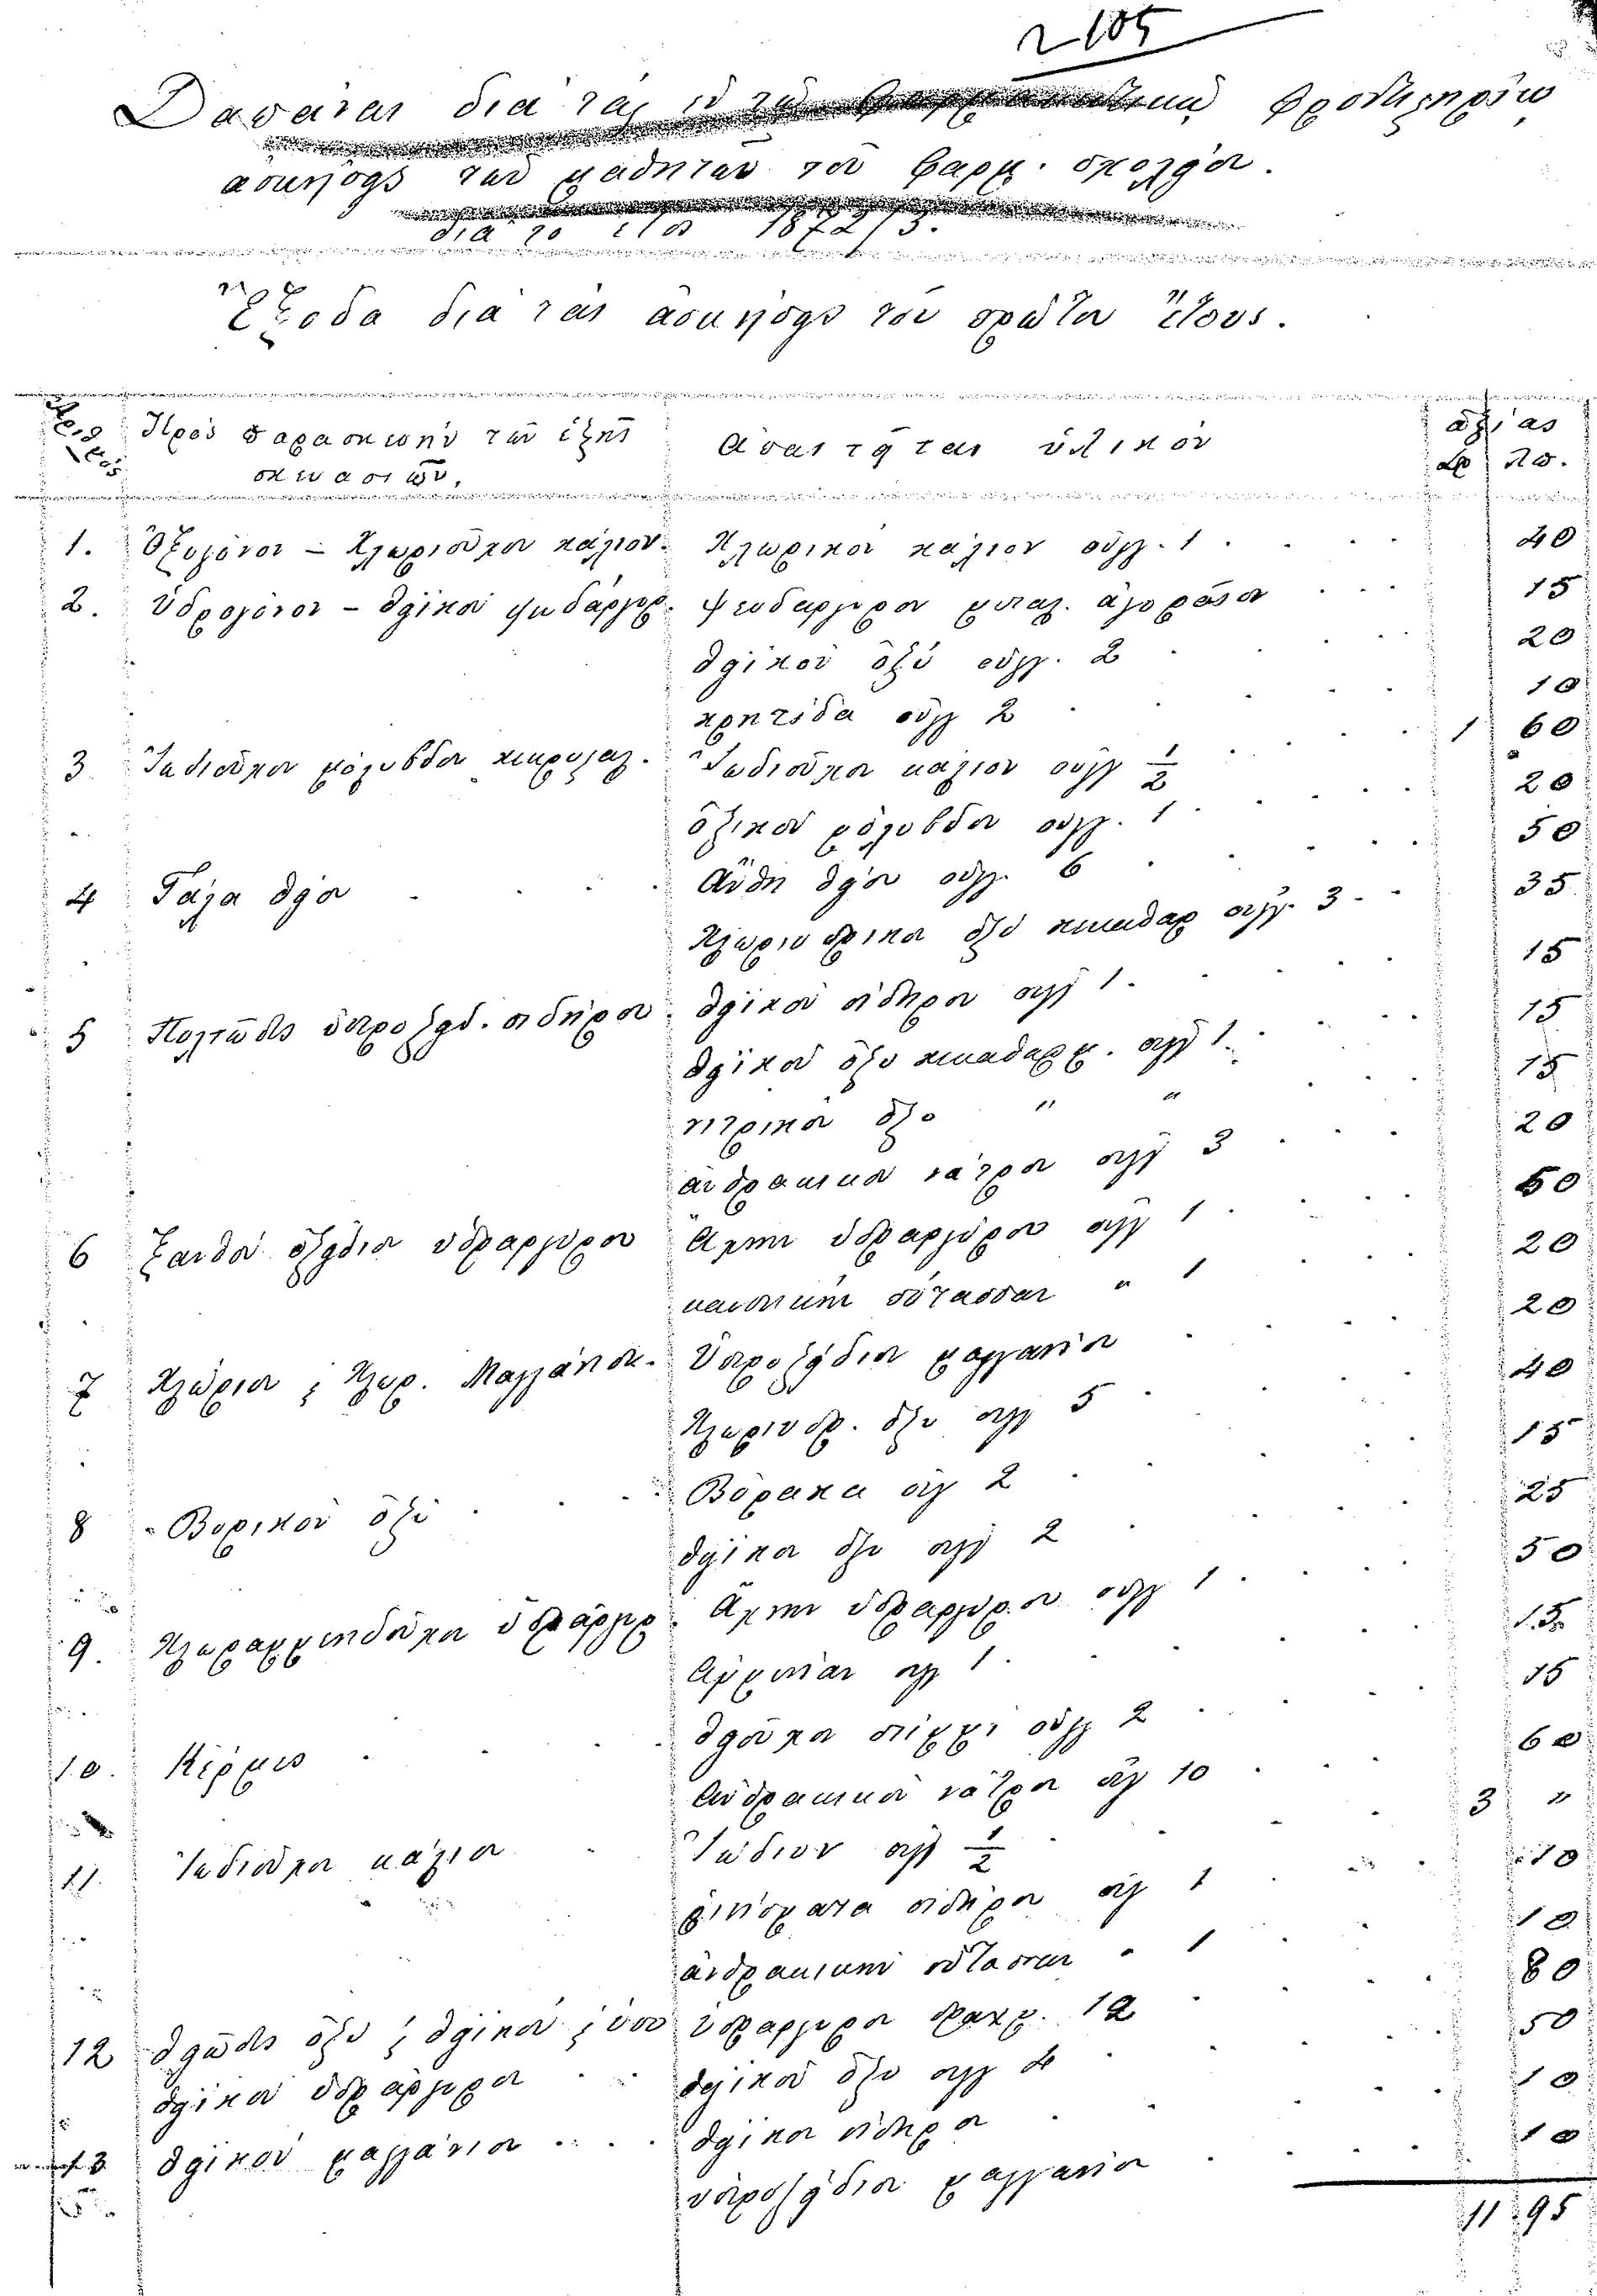 2105
Δαπάναι διὰ τὰς ἐν τῷ φαρμακευτικῷ φροντιστηρίῳ
ἀσκήσεις τῶν μαθητῶν τοῦ φαρμ. σχολείου.
διὰ τὸ ἔτος 1872/3.
Ἔξοδα διὰ τὰς ἀσκήσεις τοῦ πρώτου ἔτους.
Ἀριθμός Πρὸς παρασκευὴν τῶν ἑξῆς Ἀπαιτεῖται ὑλικὸν ἀξίας
σκευασιῶν. Δρ Λεπ.
1. Ὀξυγόνον – Χλωριοῦχον κάλιον. Χλωρικὸν κάλιον οὐγγ. 1 40
2. Ὑδρογόνον – θειϊκὸν ψευδάργυρ. Ψευδάργυρον μεταλ. ἀγορᾶσαι 15
θειϊκὸν ὀξὺ οὐγγ. 2 20
κρητίδα οὐγγ 2 10
3 Ἰωδιοῦχον μόλυβδον κεκρυσταλ. Ἰωδιοῦχον κάλιον οὐγγ 1/2 1 60
ὀξικὸν μόλυβδον οὐγγ. 1 20
4 Γάλα θείου Ἄνθη θείου οὐγγ. 6 50
Χλωριυδρικὸν ὀξὺ κεκαθαρ οὐγγ. 3 35
5 Πολτῶδες ὑπεροξειδ. σιδήρου. θειϊκὸν σίδηρον οὐγγ 1 15
θειϊκὸν ὀξὺ κεκαθαρμ. οὐγγ 1 15
νιτρικὸν ὀξὺ " " 15
ἀνθρακικὸν νάτρον οὐγγ 3 20
6 Ξανθὸν ὀξείδιον ὑδραργύρου Ἄχνην ὑδραργύρου οὐγγ 1 50
καυστικὴν πότασσαν " 1 20
7 Χλώριον ϗ Χλωρ. Μαγγάνιον. Ὑπεροξείδιον μαγγανίου 20
Χλωριυδρ. ὀξὺ οὐγγ 5 40
8 Βορικὸν ὀξὺ Βόρακα οὐγ 2 15
θειϊκὸν ὀξὺ οὐγγ 2 25
9. Χλωραμμινδοῦχον ὑδράργυρ. Ἄχνην ὑδραργύρου οὐγγ 1 50
Ἀμμωνίαν οὐγγ 1 15
10. Κέρμες θειοῦχον στίμμι οὐγγ 2 15
Ἀνθρακικὸν νάτρον οὐγ 10 60
11. Ἰωδιοῦχον κάλιον Ἰώδιον οὐγγ 1/2 3 "
ῥινίσματα σιδήρου οὐγ 1 10
ἀνθρακικὴν πότασσαν " 1 10
12 θειῶδες ὀξὺ ϗ θειϊκὸν ϗ ὑπο ὑδράργυρον δραχμ. 12 80
θειϊκὸν ὑδράργυρον θειϊκὸν ὀξὺ οὐγγ 4 50
13 θειϊκὸν μαγγάνιον θειϊκὸν σίδηρον 10
ὑπεροξείδιον μαγγανίου 10
11 95